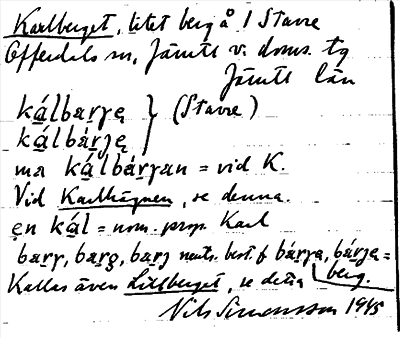 Karlberget, litet berg å 1 Stavre
Offerdals sn, Jämtl v. doms. tg
Jämtl län
ká̱lbaṟɟę } (Stavre)
ká̱lbáṟɟę
ma ká̱lbárɟan = vid K.
Vid Karlhägnen, se denna.
ęn ká̱l = nom. prop. Karl
barɟ, barg, barj neutr. best. f bárɟa, bárɟę =
Kallas även Lillberget, se detta berg.
Nils Simonsson 1945